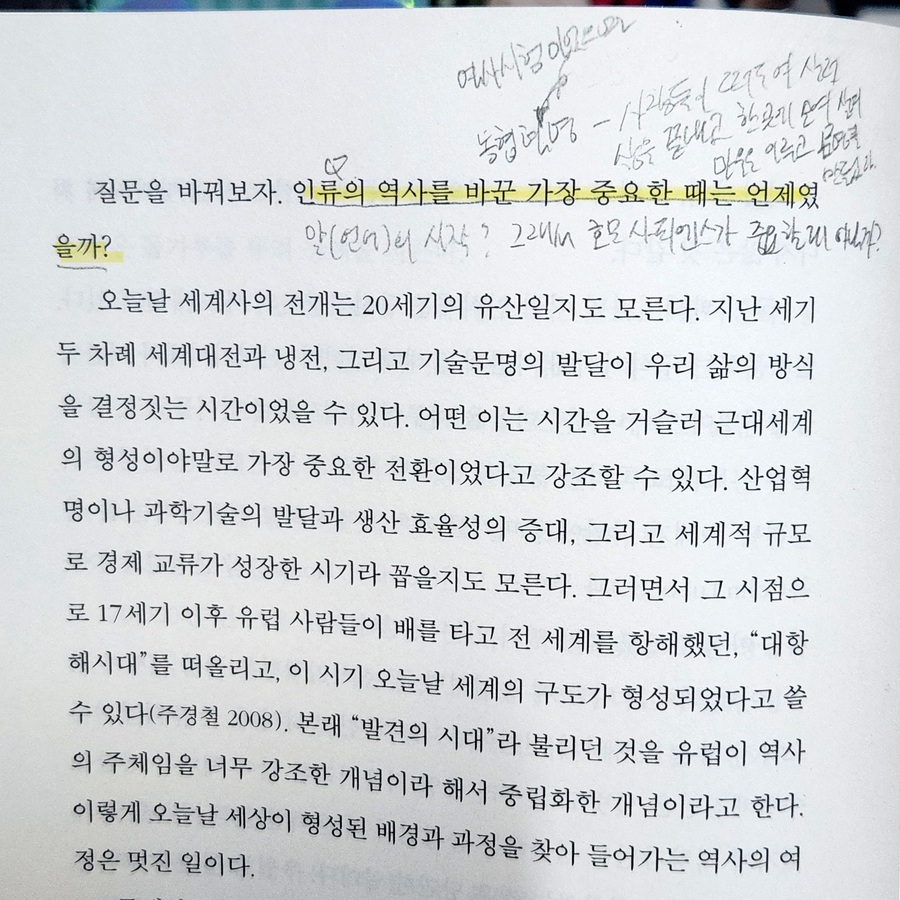 역사시험
농협혁명 - 사람들이 떠돌며 살던
삶을 끝내고 한곳에 모여 살며
마을을 이루고 문명을
만들었다.
질문을 바꿔보자. 인류의 역사를 바꾼 가장 중요한 때는 언제였
을까?
말(언어)의 시작? 그래서 호모 사피엔스가 중요한 거 아닌가?
오늘날 세계사의 전개는 20세기의 유산일지도 모른다. 지난 세기
두 차례 세계대전과 냉전, 그리고 기술문명의 발달이 우리 삶의 방식
을 결정짓는 시간이었을 수 있다. 어떤 이는 시간을 거슬러 근대세계
의 형성이야말로 가장 중요한 전환이었다고 강조할 수 있다. 산업혁
명이나 과학기술의 발달과 생산 효율성의 증대, 그리고 세계적 규모
로 경제 교류가 성장한 시기라 꼽을지도 모른다. 그러면서 그 시점으
로 17세기 이후 유럽 사람들이 배를 타고 전 세계를 항해했던, “대항
해시대”를 떠올리고, 이 시기 오늘날 세계의 구도가 형성되었다고 쓸
수 있다(주경철 2008). 본래 “발견의 시대”라 불리던 것을 유럽이 역사
의 주체임을 너무 강조한 개념이라 해서 중립화한 개념이라고 한다.
이렇게 오늘날 세상이 형성된 배경과 과정을 찾아 들어가는 역사의 여
정은 멋진 일이다.